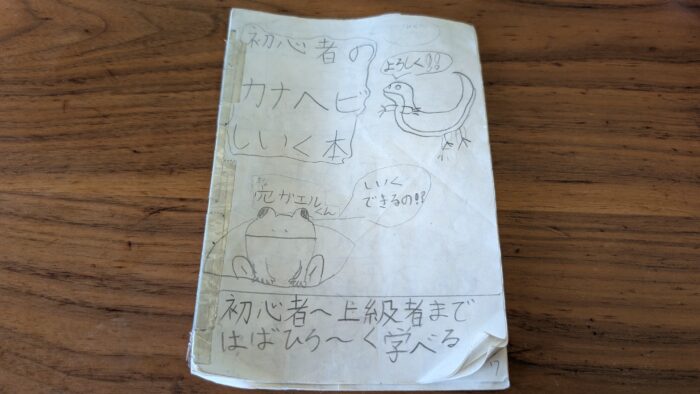 初心者の
カナヘビ
しいく本
よろしく!!
売ガエルくん
いいく
できるの!?
初心者へ上級者まで
はばひろ〜く学べる